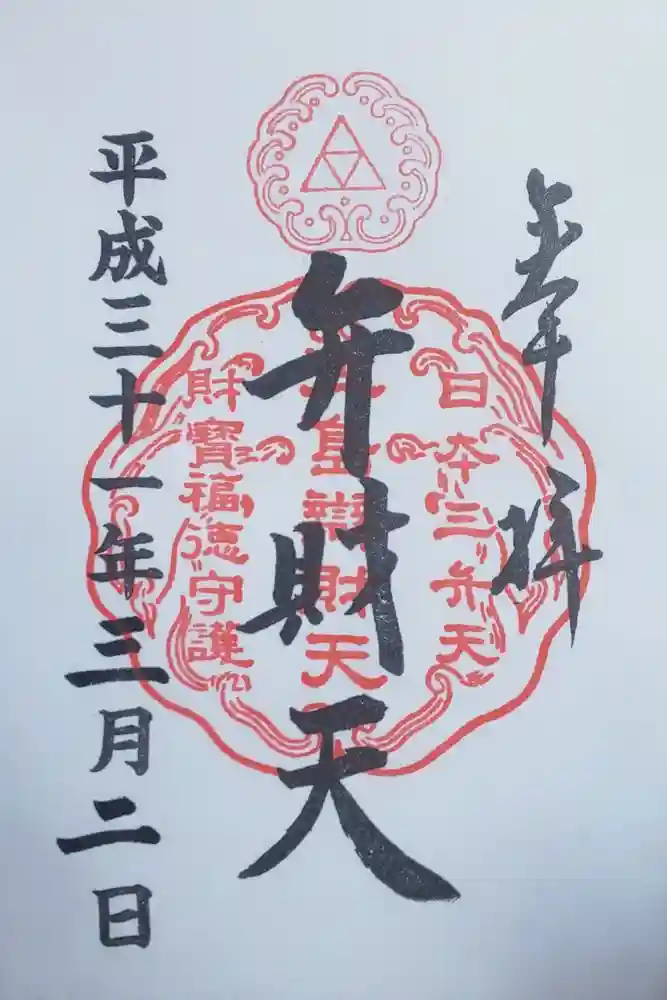 奉拝
日本三弁天
弁財天
島財天
財寶福徳守護
平成三十一年三月二日